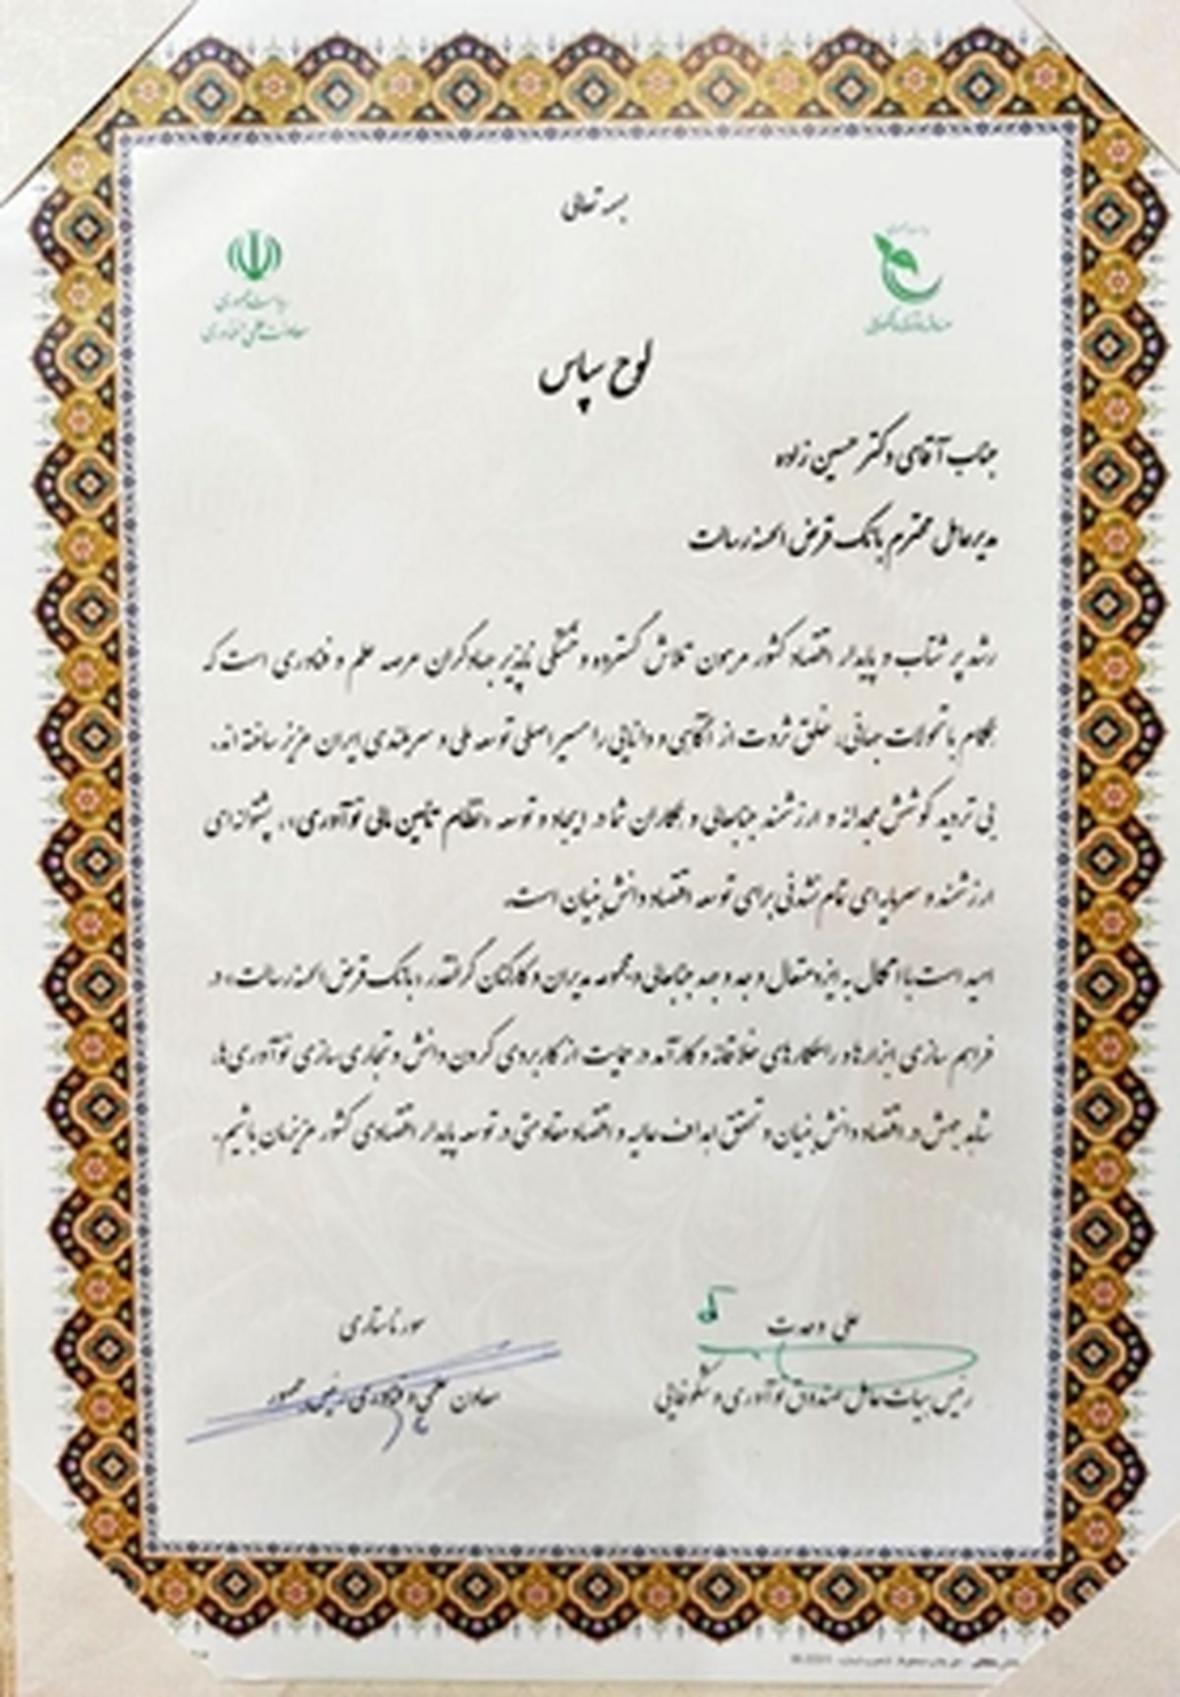 بسمه تعالی
ریاست جمهوری
معاونت علمی و فناوری
لوح سپاس
جناب آقای دکتر حسین زاده
مدیرعامل محترم بانک قرض الحسنه رسالت
رشد پر شتاب و پایدار اقتصاد کشور مرهون تلاش گسترده و خستگی ناپذیر جهادگران عرصه علم و فناوری است که
همگام با تحولات جهانی، خلق ثروت از آگاهی و دانایی را مسیر اصلی توسعه ملی و سربلندی ایران عزیز ساخته اند.
بی تردید کوشش مجدانه و ارزشمند جنابعالی و همکاران شما در ایجاد و توسعه «نظام تامین مالی نوآوری»، پشتوانه ای
ارزشمند و سرمایه ای تمام نشدنی برای توسعه اقتصاد دانش بنیان است.
امید است با اتکال به ایزد متعال و جد و جهد جنابعالی و مجموعه مدیران و کارکنان گرانقدر «بانک قرض الحسنه رسالت» در
فراهم سازی ابزارها و راهکارهای خلاقانه و کارآمد در حمایت از کاربردی کردن دانش و تجاری سازی نوآوری ها،
شاهد جهش در اقتصاد دانش بنیان و تحقق اهداف عالیه و اقتصاد مقاومتی در توسعه پایدار اقتصادی کشور عزیزمان باشیم.
علی وحدت
رئیس هیات عامل صندوق نوآوری و شکوفایی
سورنا ستاری
معاون علمی و فناوری رئیس جمهور